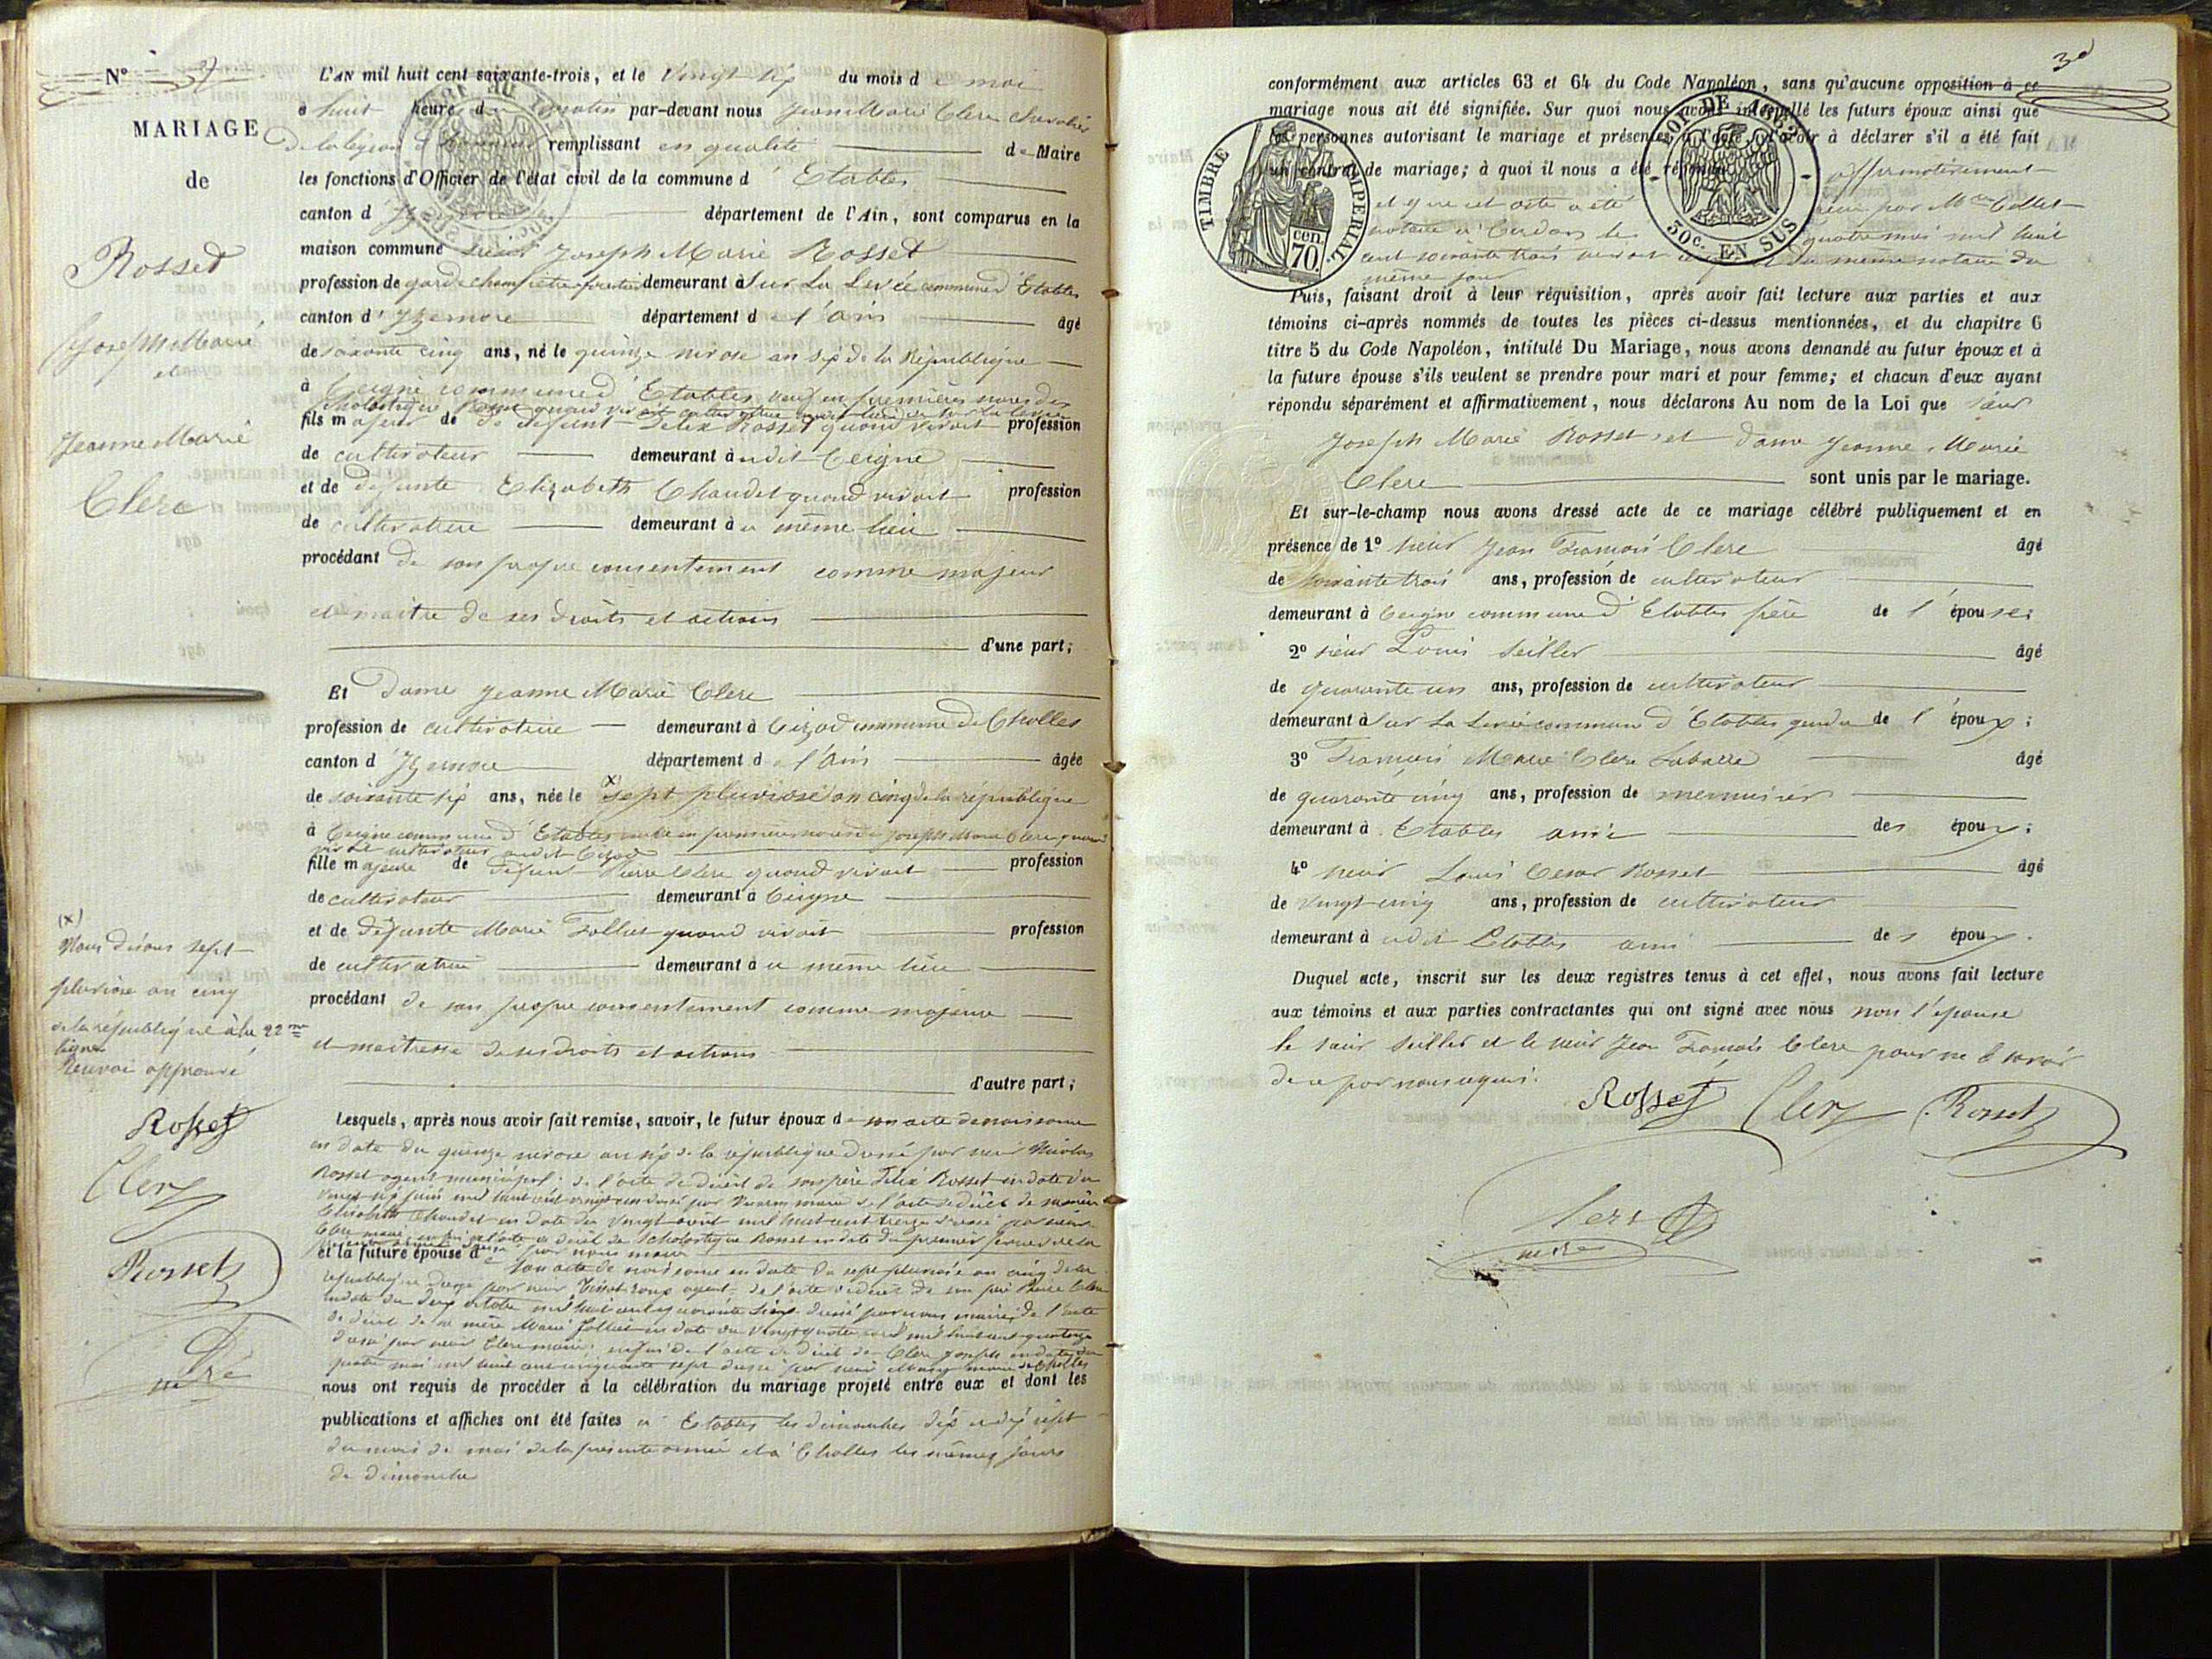 N° 3
MARIAGE
de
Rosset
Joseph Marie
et
Jeanne Marie
Clerc
L'AN mil huit cent soixante-trois, et le vingt six du mois de mai
à huit heure du matin par-devant nous Jean Marie Clerc chevalier
de la légion d'honneur remplissant en qualité de Maire
les fonctions d'Officier de l'état civil de la commune d'Etables
canton d'Izernore département de l'Ain, sont comparus en la
maison commune sieur Joseph Marie Rosset
profession de garde champêtre forestier demeurant à Sur La Levée commune d'Etables
canton d'Izernore département de l'ain âgé
de soixante cinq ans, né le quinze nivose an six de la République
à Ceigne commune d'Etables veuf en premières noces de
Scholastique Rosset quand vivait cultivatrice
fils majeur de défunt Félix Rosset quand vivait profession
de cultivateur demeurant audit Ceigne
et de défunte Elizabeth Chaudet quand vivait profession
de cultivatrice demeurant au même lieu
procédant de son propre consentement comme majeur
et maître de ses droits et actions
d'une part;
Et Dame Jeanne Marie Clerc
profession de cultivatrice demeurant à Cizod commune de Cholles
canton d'Izernore département de l'Ain âgée
de soixante six ans, née le (x) sept pluviose an cinq de la république
à Ceigne commune d'Etables veuve en premières noces de Joseph Marie Clerc quand
vivait cultivateur audit Cizod
fille majeure de défunt Pierre Clerc quand vivait profession
de cultivateur demeurant à Ceigne
et de défunte Marie Folliet quand vivait profession
de cultivatrice demeurant au même lieu
procédant de son propre consentement comme majeure
et maîtresse de ses droits et actions
d'autre part;
(x)
Nous disons sept
pluviose an cinq
de la république à la 22me
ligne
Renvoi approuvé
Rosset
Clerc
Rosset
Lesquels, après nous avoir fait remise, savoir, le futur époux de son acte de naissance
en date du quinze nivose an six de la république dressé par sieur Nicolas
Rosset agent municipal; de l'acte de décès de son père Félix Rosset en date du
vingt six juin mil huit cent vingt un dressé par maire de l'acte de décès de sa mère
Elisabeth Chaudet en date du vingt août mil huit cent treize dressé par sieur
Clerc maire enfin de l'acte de décès de Scholastique Rosset en date du premier
par nous maire
et la future épouse de son acte de naissance en date du sept pluviose an cinq de la
république dressé par sieur agent de l'acte de décès de son père Pierre Clerc
en date du dix octobre mil huit cent quarante dressé par nous maire; de l'acte
de décès de sa mère Marie Folliet en date du vingt quatre mil huit cent quatorze
dressé par sieur Clerc maire; enfin de l'acte de décès de Clerc Joseph en date du
quatre mai mil huit cent cinquante sept dressé par sieur maire de Cholles
nous ont requis de procéder à la célébration du mariage projeté entre eux et dont les
publications et affiches ont été faites à Etables les dimanches dix et dix sept
du mois de mai de la présente année et à Cholles les mêmes jours
de dimanche
3
conformément aux articles 63 et 64 du Code Napoléon, sans qu'aucune opposition à ce
mariage nous ait été signifiée. Sur quoi nous avons interpellé les futurs époux ainsi que
les personnes autorisant le mariage et présentes à l'acte, d'avoir à déclarer s'il a été fait
un contrat de mariage; à quoi il nous a été répondu affirmativement
et que cet acte a été reçu par Me Collet
notaire à Cerdon le quatre mai mil huit
cent soixante trois du même notaire du
même jour
TIMBRE IMPERIAL
70 cen.
LOI DE 1862
30c. EN SUS
Puis, faisant droit à leur réquisition, après avoir fait lecture aux parties et aux
témoins ci-après nommés de toutes les pièces ci-dessus mentionnées, et du chapitre 6
titre 5 du Code Napoléon, intitulé Du Mariage, nous avons demandé au futur époux et à
la future épouse s'ils veulent se prendre pour mari et pour femme; et chacun d'eux ayant
répondu séparément et affirmativement, nous déclarons Au nom de la Loi que sieur
Joseph Marie Rosset et dame Jeanne Marie
Clerc sont unis par le mariage.
Et sur-le-champ nous avons dressé acte de ce mariage célébré publiquement et en
présence de 1° sieur Jean François Clerc âgé
de soixante trois ans, profession de cultivateur
demeurant à Ceigne commune d'Etables frère de l'épouse;
2° sieur Louis Seiller âgé
de quarante un ans, profession de cultivateur
demeurant à Sur La Levée commune d'Etables gendre de l'époux;
3° François Marie Clerc Labarre âgé
de quarante cinq ans, profession de menuisier
demeurant à Etables ami des époux;
4° sieur Louis Cesar Rosset âgé
de vingt cinq ans, profession de cultivateur
demeurant audit Etables ami des époux.
Duquel acte, inscrit sur les deux registres tenus à cet effet, nous avons fait lecture
aux témoins et aux parties contractantes qui ont signé avec nous non l'épouse
le sieur Seiller et le sieur Jean François Clerc pour ne le savoir
de ce par nous requis.
Rosset Clerc Rosset
Clerc
maire